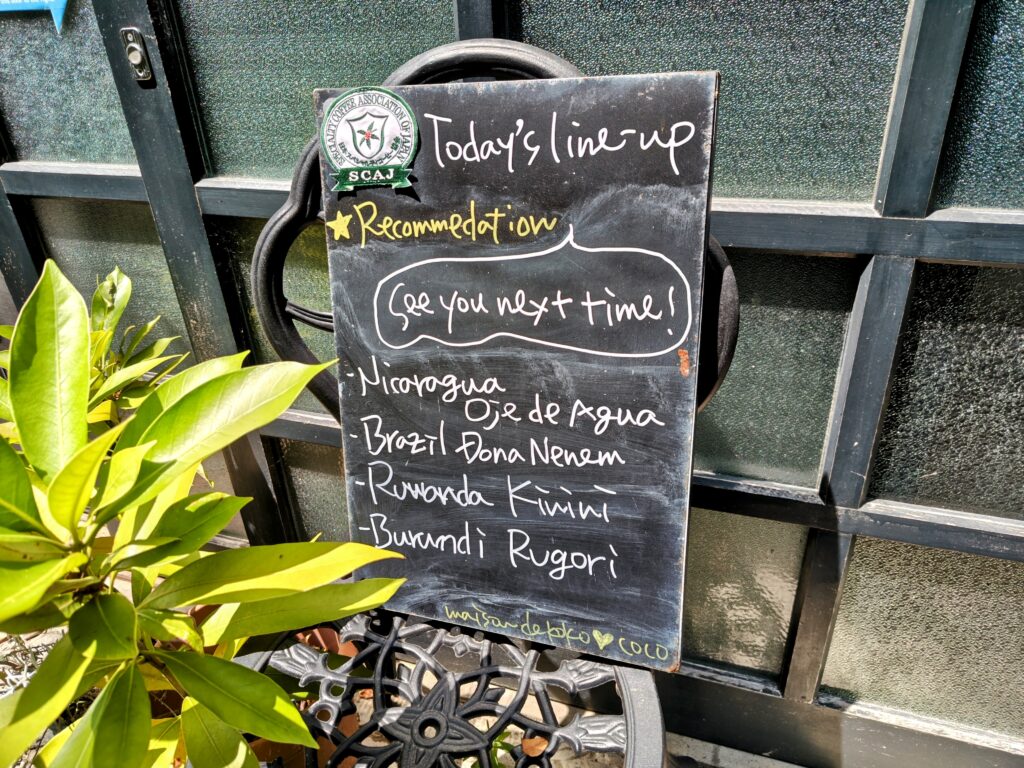 SPECIALTY COFFEE ASSOCIATION OF JAPAN
SCAJ
Today's line-up
★Recommedation
See you next time!
-Nicaragua
Oje de Agua
-Brazil Dona Nenem
-Rwanda Kinini
-Burundi Rugori
maison de koko♥coco